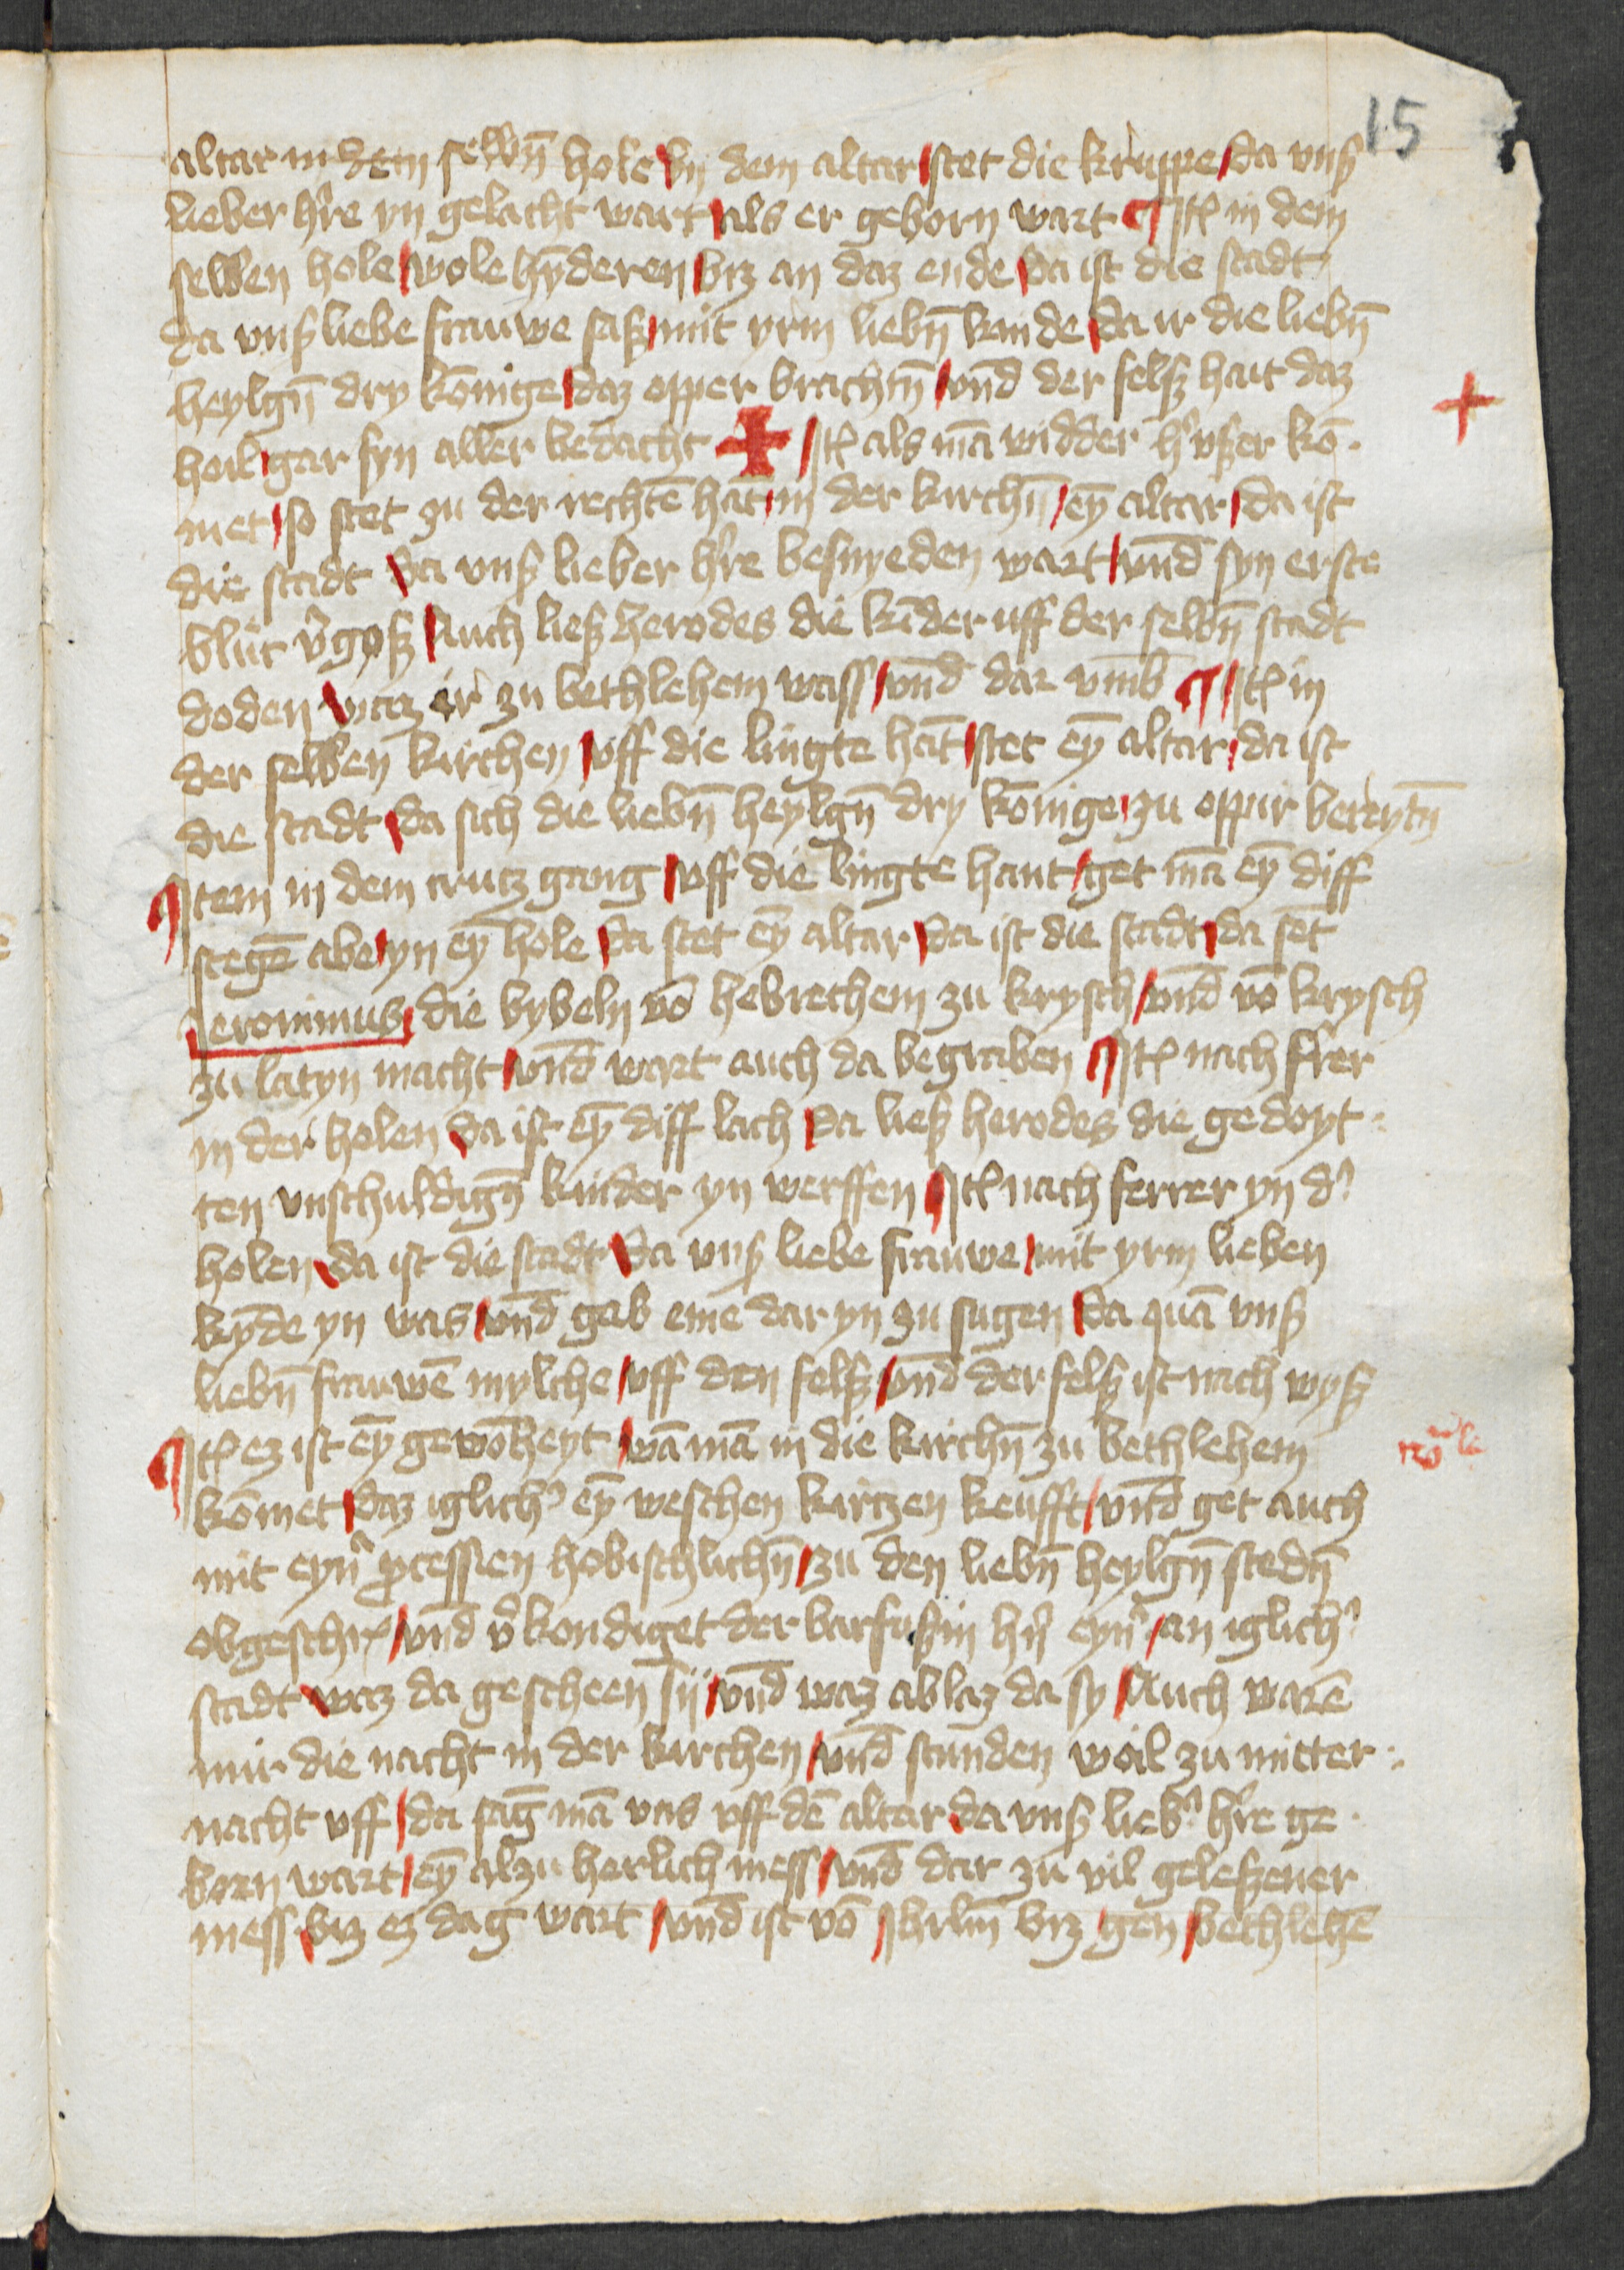 15
altar in dem selbn̄ hole by dem altar stet die kruppe da vnsß
lieber h're yn gelacht wart als er geborn wart Itꝫ in dem
selben hole wole hȳderen biz an daz ende da ist die stadt
da vnß liebe frauwe saß mit yrm liebn̄ kinde da ir die liebn̄
heylgn̄ dry konīge daz opper brachtn̄ vnd der felß hait daz
heil gar syn aller bedacht Itꝫ als mā widder h'vßer kō
met so stet zu der rechtē hāt in der kirchn̄ eȳ altar da ist
die stadt da vnß lieber h're besnyeden wart vnd syn erste
blut v'goß Auch ließ herodes die kīder uff der selbn̄ stadt
doden waz ir zu bethlehem wass vnd dar vmb Itꝫ in
der selben kirchen vff die lingte hāt stet eȳ altar da ist
die stadt da sich die liebn̄ heylgn̄ dry konīge zu oppir bereytn̄
Item in dem crutz gang vff die lingte hant get mā eȳ diff
stegē abe yn eȳ hole da stet eȳ altar da ist die stadt da sēt
Jeronimus die bybeln vō hebrechem zu krysch vnd vō krysch
zu latyn macht vnd wart auch da begraben Itꝫ nach ferrer
in der holen da ist eȳ diff lach da ließ herodes die gedoyt
ten vnschuldign̄ kinder yn werffen Itꝫ nach ferrer yn d'
holen da ist die stadt da vnß liebe frauwe mit yrm lieben
kȳde yn was vnd gab eme dar yn zu sugen da quā vnß
liebn̄ frauwē mylche vff den felß vnd der felß ist nach wyß
Itꝫ ez ist eȳ gewōheyt wā mā in die kirchn̄ zu bethlehem
kōmet daz iglich' eȳ weschen kirtzen keufft vnd get auch
mit eyn' ꝓcessien hobischlichn̄ zu den liebn̄ heylgn̄ stedn̄
obgeschrꝫ vnd v'kondiget der barfußin h'n eyn' an iglich'
stadt waz da gescheen sij vnd waz ablaz da sy Auch warē
mir die nacht in der kirchen vnd stunden woil zu mitter
nacht vff da sāg mā vns vff dē altar da vnß lieb' h're ge
born wart eȳ alzu herlich mess vnd dar zu vil geleßener
mess biz ez dag wart vnd ist vō Jhrlm̄ biz gen bethlehē